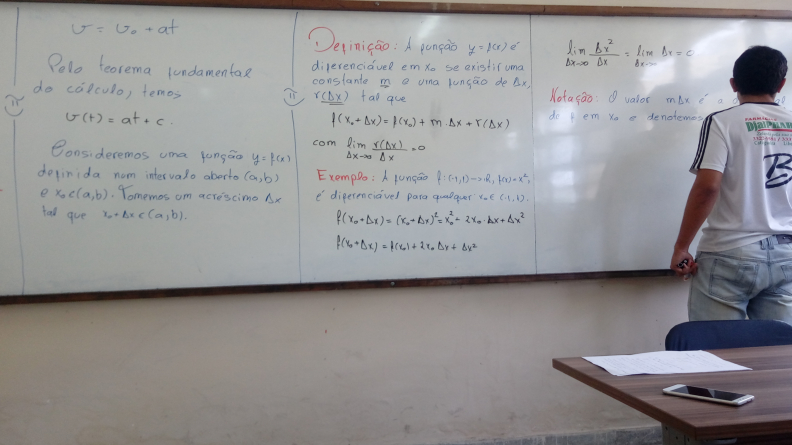 v = v₀ + at
Pelo teorema fundamental
do cálculo, temos
v(t) = at + c.
Consideremos uma função y = f(x)
definida num intervalo aberto (a,b)
e x₀ ∈ (a,b). Tomemos um acréscimo Δx
tal que x₀ + Δx ∈ (a,b).
Definição: A função y = f(x) é
diferenciável em x₀ se existir uma
constante m e uma função de Δx,
r(Δx) tal que
f(x₀ + Δx) = f(x₀) + m · Δx + r(Δx)
com lim Δx→∞ r(Δx)/Δx = 0
Exemplo: A função f: (-1,1) → R, f(x) = x²,
é diferenciável para qualquer x₀ ∈ (-1,1).
f(x₀ + Δx) = (x₀ + Δx)² = x₀² + 2x₀ · Δx + Δx²
f(x₀ + Δx) = f(x₀) + 2x₀ Δx + Δx²
lim Δx→∞ Δx²/Δx = lim Δx→∞ Δx = 0
Notação: O valor mΔx é a
de f em x₀ e denotemos